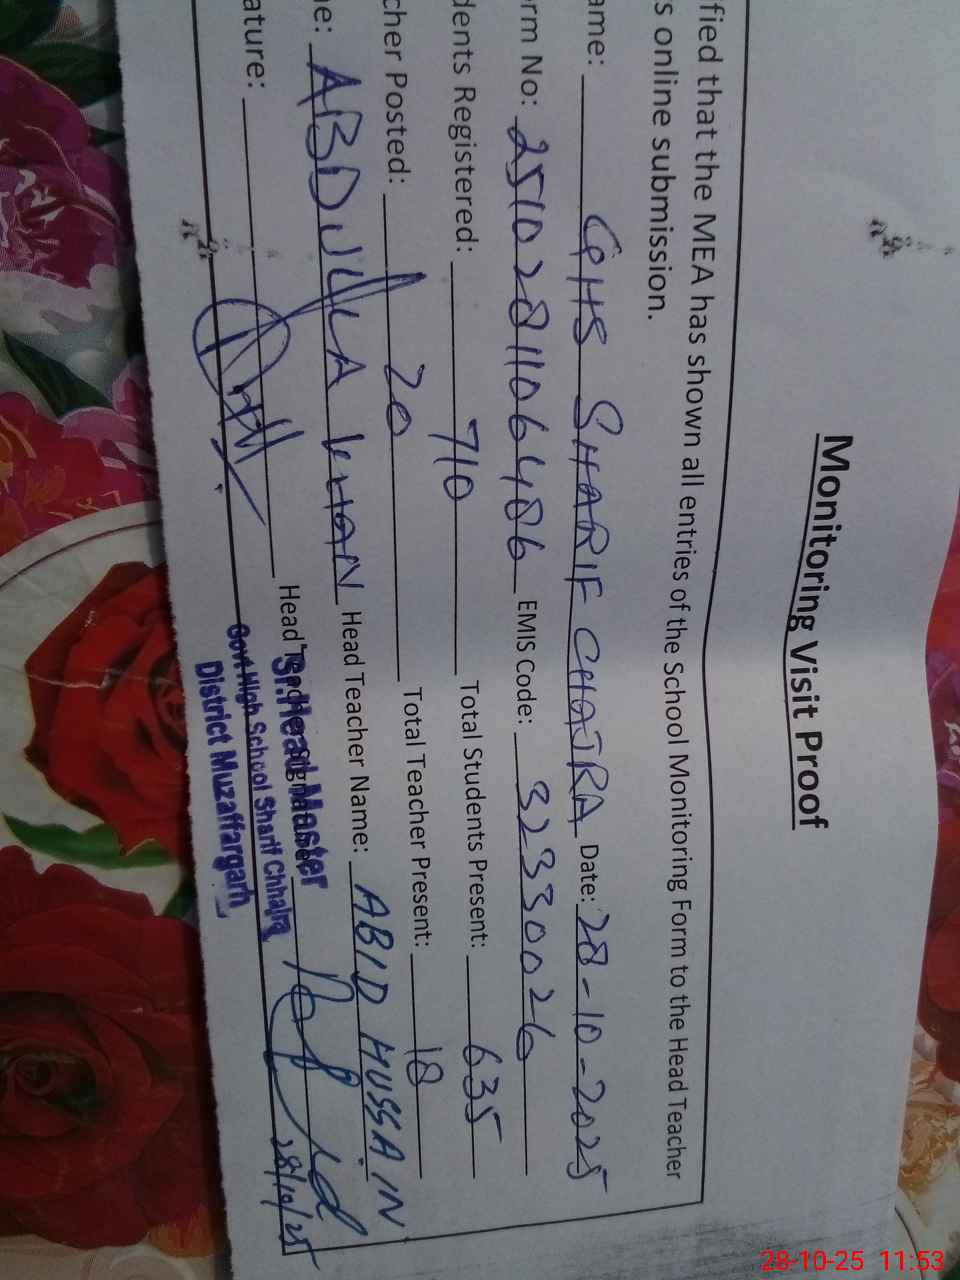 Monitoring Visit Proof
fied that the MEA has shown all entries of the School Monitoring Form to the Head Teacher
s online submission.
ame: GHS SHARIF CHATRA Date: 28-10-2025
orm No: 251028110 6486 EMIS Code: 32330026
dents Registered: 710 Total Students Present: 635
cher Posted: 20 Total Teacher Present: 18
ne: ABDULLA KHAN Head Teacher Name: ABID HUSSAIN
ature: Head Teacher Signature:
Sr. Head Master
Govt High School Sharif Chhajra
District Muzaffargarh
28/10/25
28-10-25 11:53